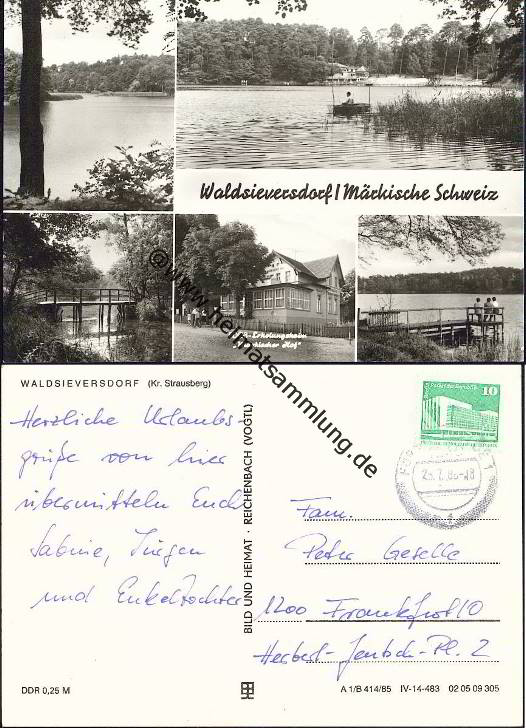 Waldsieversdorf / Märkische Schweiz
Erholungsheim
"Märkischer Hof"
© www.heimatsammlung.de
WALDSIEVERSDORF (Kr. Strausberg)
Herzliche Urlaubs-
grüße von hier
übermitteln Euch
Sabine, Jürgen
und Enkeltochter
BILD UND HEIMAT · REICHENBACH (VOGTL)
10
Fam.
Petra Geselle
1200 Frankf
Herbert-Jentsch-Pl. 2
DDR 0,25 M
A 1/B 414/85 IV-14-483 02 05 09 305